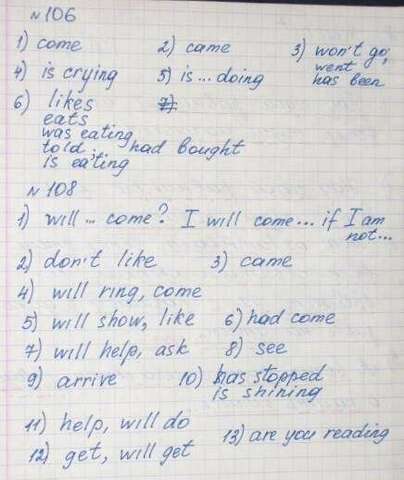 №106
1) come 2) came 3) won't go,
went
4) is crying 5) is ... doing has been
6) likes
eats
was eating
told. had bought
is eating
№108
1) will ... come? I will come ... if I am
not...
2) don't like 3) came
4) will ring, come
5) will show, like 6) had come
7) will help, ask 8) see
9) arrive 10) has stopped
is shining
11) help, will do
12) get, will get 13) are you reading